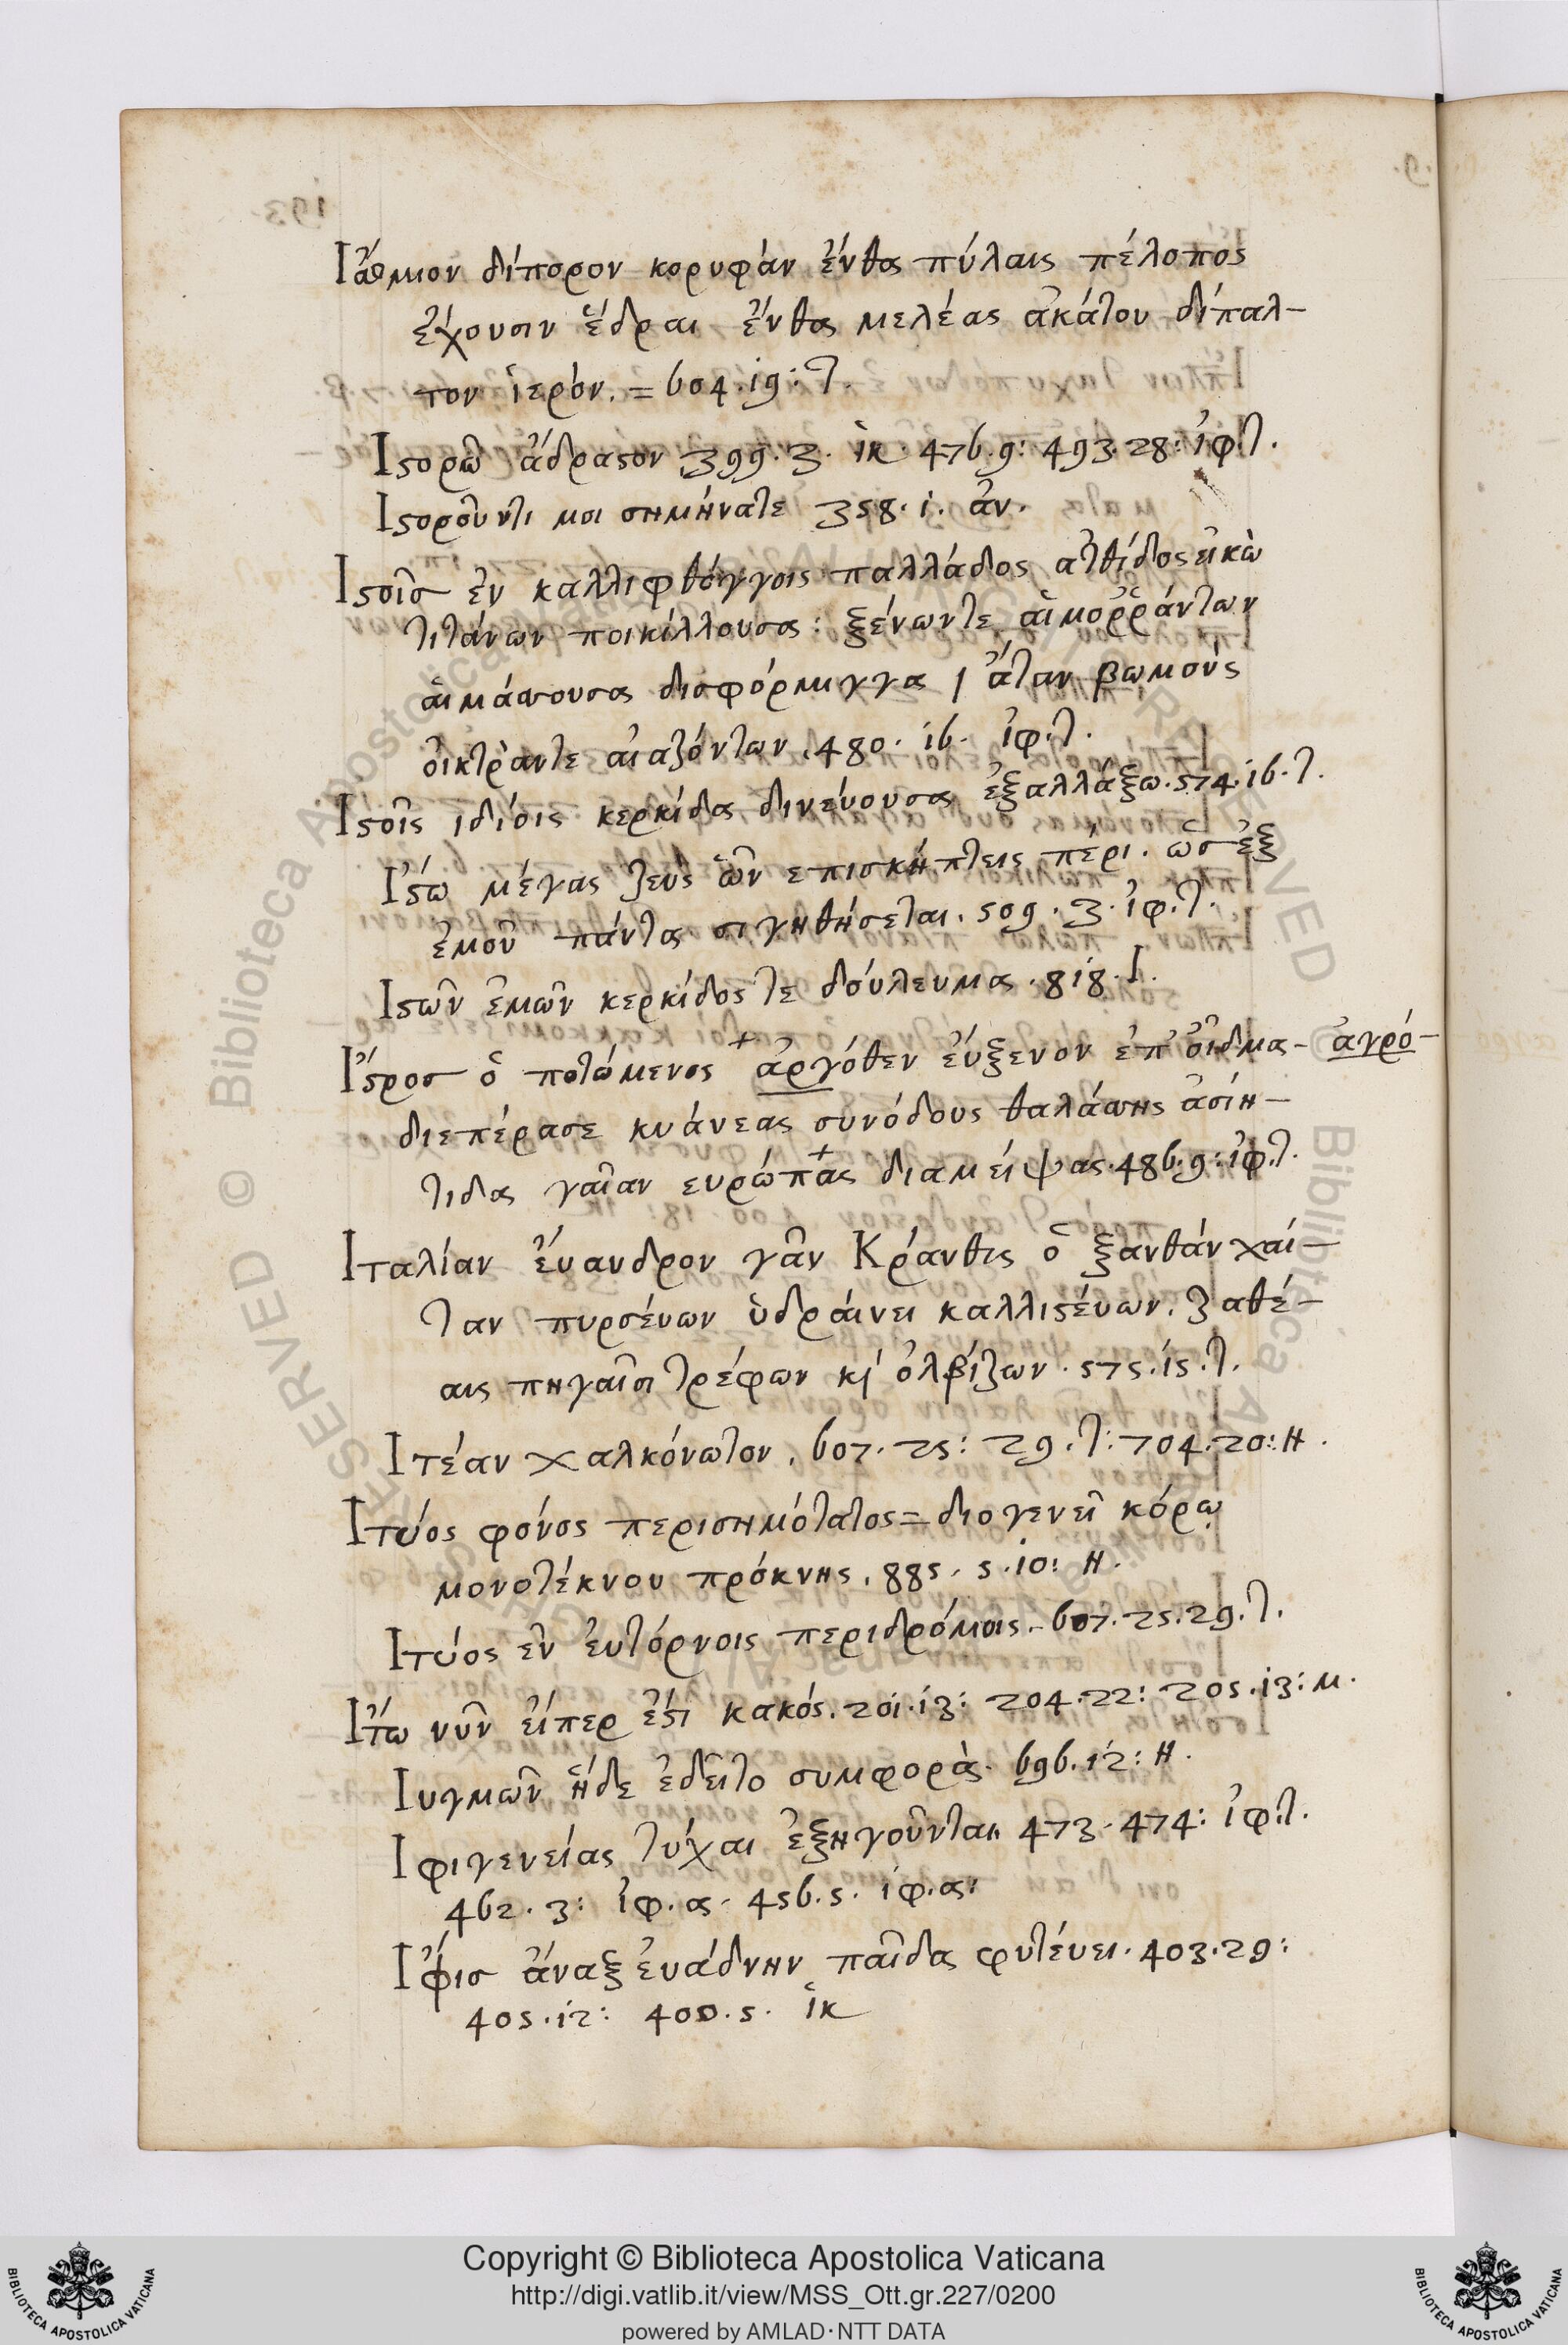 Ἴσθμιον δίπορον κορυφὰν ἔνθα πύλαις πέλοπος
ἔχουσιν ἕδραι ἔνθα μελέας ἀκάτου δίπαλ-
τον ἱερὸν. = 604.19: τ.
Ιστορῶ ἄδραστον 399.3. ἱκ. 476.9: 493.28: ἰφ.τ.
Ιστοροῦντι μοι σημήνατε 358.1. ἀν.
Ιστοῖσ ἐν καλλιφθόγγοις παλλάδος ἀτθίδος εἰκὼ
τιτάνων ποικίλλουσα: ξένωντε αἱμορῥάντων
αἱμάσσουσα δισφόρμιγγα / ἄταν βωμοὺς
οἰκτρὰντε αἰαζόντων. 480. 16. ἰφ.τ.
Ιστοῖς ἰδίοις κερκίδα δινεύουσα ἐξαλλάξω. 574.16.τ.
Ἴστω μέγας ζεὺς ὧν επισκήπτεις πέρι. ὡσ ἐξ
ἐμοῦ πάντα σιγηθήσεται. 509.3. ἰφ.τ.
Ιστῶν ἐμῶν κερκίδος τε δούλευμα. 818. Ι.
Ἴστροσ ὁ ποτώμενος + ἀργόθεν εὔξενον ἐπ' οἶδμα - ἀγρό-
διεπέρασε κυάνεας συνόδους θαλάσσης ἀσίη-
τιδα γαῖαν ευρώπας + διαμείψας. 486.9: ἰφ.τ.
Ιταλίαν εὔανδρον γᾶν Κράνθις ὁ ξανθὰν χαί-
ταν πυρσεύων ὑδραίνει καλλιστεύων. ζαθέ-
αις πηγαῖσι τρέφων κ' ὀλβίζων. 575.15.τ.
Ιτέαν χαλκόνωτον. 607.25: 29.τ: 704.20: Η.
Ιτύος φόνος περισημότατος = διογενεῖ κόρῳ
μονοτέκνου πρόκνης. 885. 5.10: Η.
Ιτύος ἐν εὐτόρνοις περιδρόμοις. 607.25.29.τ.
Ἴτω νῦν εἴπερ ἐστὶ κακός. 201.13: 204.22: 205.13: μ.
Ιυγμῶν ἥδε ἐδεῖτο συμφορὰ. 696.12: Η.
Ιφιγενείας τύχαι ἐξηγοῦνται. 473. 474: ἰφ.τ.
462.3: ἰφ.α. 456.5. ἰφ.α:
Ἴφισ ἄναξ εὐάδνην παῖδα φυτεύει. 403.29:
405.12: 400.5. ἱκ
Copyright © Biblioteca Apostolica Vaticana
http://digi.vatlib.it/view/MSS_Ott.gr.227/0200
powered by AMLAD·NTT DATA